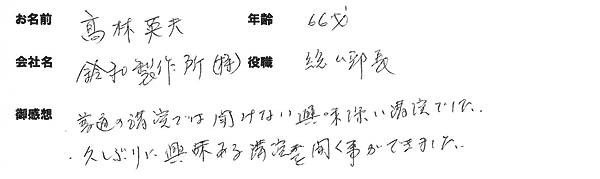 お名前 髙林英夫 年齢 66才
会社名 鈴和製作所(株) 役職 総ム部長
御感想 普通の講演では聞けない興味深い講演でした.
・久しぶりに興味ある講演を聞く事ができました.